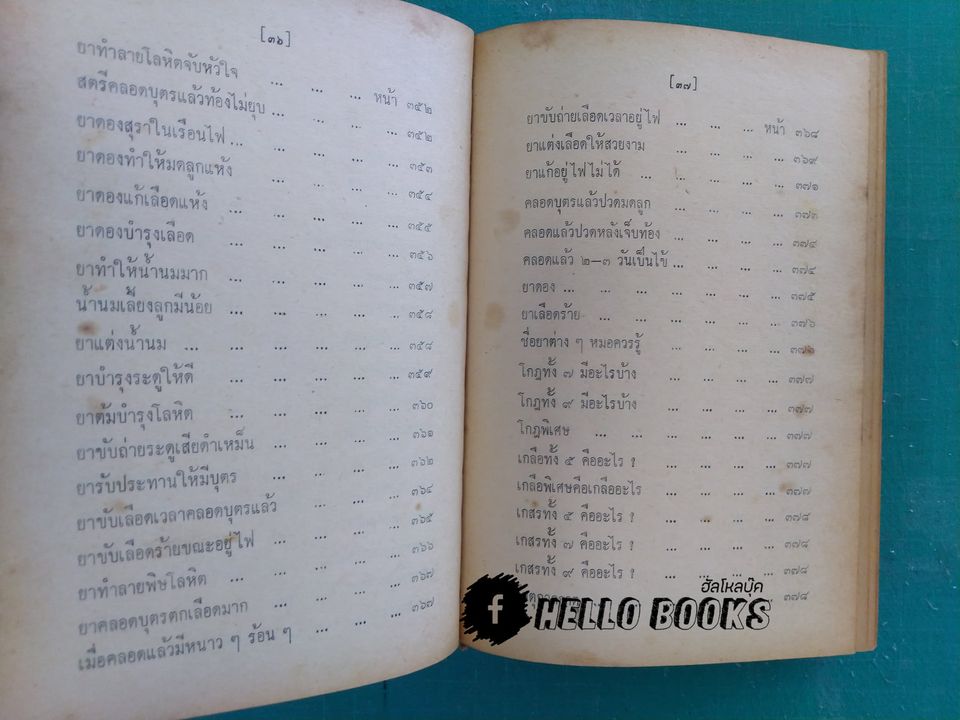 [๓๖]
ยาทำลายโลหิตจับหัวใจ ... ... ... หน้า ๓๕๒
สตรีคลอดบุตรแล้วท้องไม่ยุบ ... ... ... ... ๓๕๒
ยาดองสุราในเรือนไฟ ... ... ... ... ... ๓๕๓
ยาดองทำให้มดลูกแห้ง ... ... ... ... ๓๕๔
ยาดองแก้เลือดแห้ง ... ... ... ... ... ๓๕๕
ยาดองบำรุงเลือด ... ... ... ... ๓๕๖
ยาทำให้น้ำนมมาก ... ... ... ... ... ๓๕๗
น้ำนมเลี้ยงลูกมีน้อย ... ... ... ... ๓๕๘
ยาแต่งน้ำนม ... ... ... ... ... ๓๕๘
ยาบำรุงระดูให้ดี ... ... ... ... ๓๕๙
ยาต้มบำรุงโลหิต ... ... ... ... ๓๖๐
ยาขับถ่ายระดูเสียดำเหม็น ... ... ... ๓๖๑
ยารับประทานให้มีบุตร ... ... ... ... ๓๖๒
ยาขับเลือดเวลาคลอดบุตรแล้ว ... ... ... ๓๖๔
ยาขับเลือดร้ายขณะอยู่ไฟ ... ... ... ... ๓๖๕
ยาทำลายพิษโลหิต ... ... ... ... ๓๖๖
ยาคลอดบุตรตกเลือดมาก ... ... ... ... ๓๖๗
เมื่อคลอดแล้วมีหนาว ๆ ร้อน ๆ ... ... ... ๓๖๗
[๓๗]
ยาขับถ่ายเลือดเวลาอยู่ไฟ ... ... ... หน้า ๓๖๘
ยาแต่งเลือดให้สวยงาม ... ... ... ... ๓๖๙
ยาแก้อยู่ไฟไม่ได้ ... ... ... ... ... ๓๗๑
คลอดบุตรแล้วปวดมดลูก ... ... ... ...
คลอดแล้วปวดหลังเจ็บท้อง ... ... ... ... ๓๗๔
คลอดแล้ว ๒—๓ วันเป็นไข้ ... ... ... ... ๓๗๔
ยาดอง ... ... ... ... ... ... ๓๗๕
ยาเลือดร้าย ... ... ... ... ... ๓๗๖
ชื่อยาต่าง ๆ หมอควรรู้ ... ... ... ...
โกฎทั้ง ๗ มีอะไรบ้าง ... ... ... ... ๓๗๗
โกฎทั้ง ๙ มีอะไรบ้าง ... ... ... ... ๓๗๗
โกฎพิเศษ ... ... ... ... ... ๓๗๗
เกลือทั้ง ๕ คืออะไร ? ... ... ... ... ๓๗๗
เกลือพิเศษคือเกลืออะไร ... ... ... ... ๓๗๗
เกสรทั้ง ๕ คืออะไร ? ... ... ... ... ๓๗๘
เกสรทั้ง ๗ คืออะไร ? ... ... ... ... ๓๗๘
เกสรทั้ง ๙ คืออะไร ? ... ... ... ... ๓๗๘
... ... ... ๓๗๘
ฮัลโหลบุ๊ค
f HELLO BOOKS